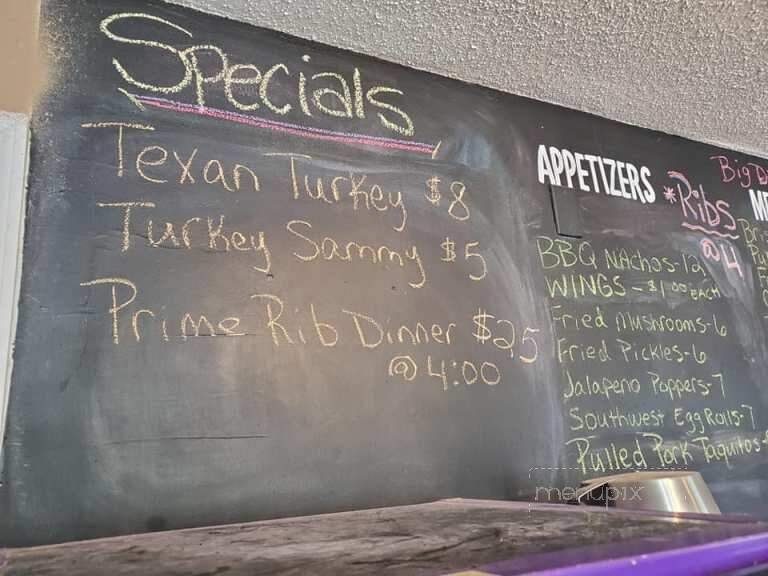 Specials
Texan Turkey $8
Turkey Sammy $5
Prime Rib Dinner $25
@ 4:00
APPETIZERS
*Ribs
@4
BBQ NAchos-12
WINGS - $1.00 EACH
Fried Mushrooms-6
Fried Pickles-6
Jalapeno Poppers-7
Southwest Egg Rolls-7
Pulled Pork Taquitos
Big
menupix